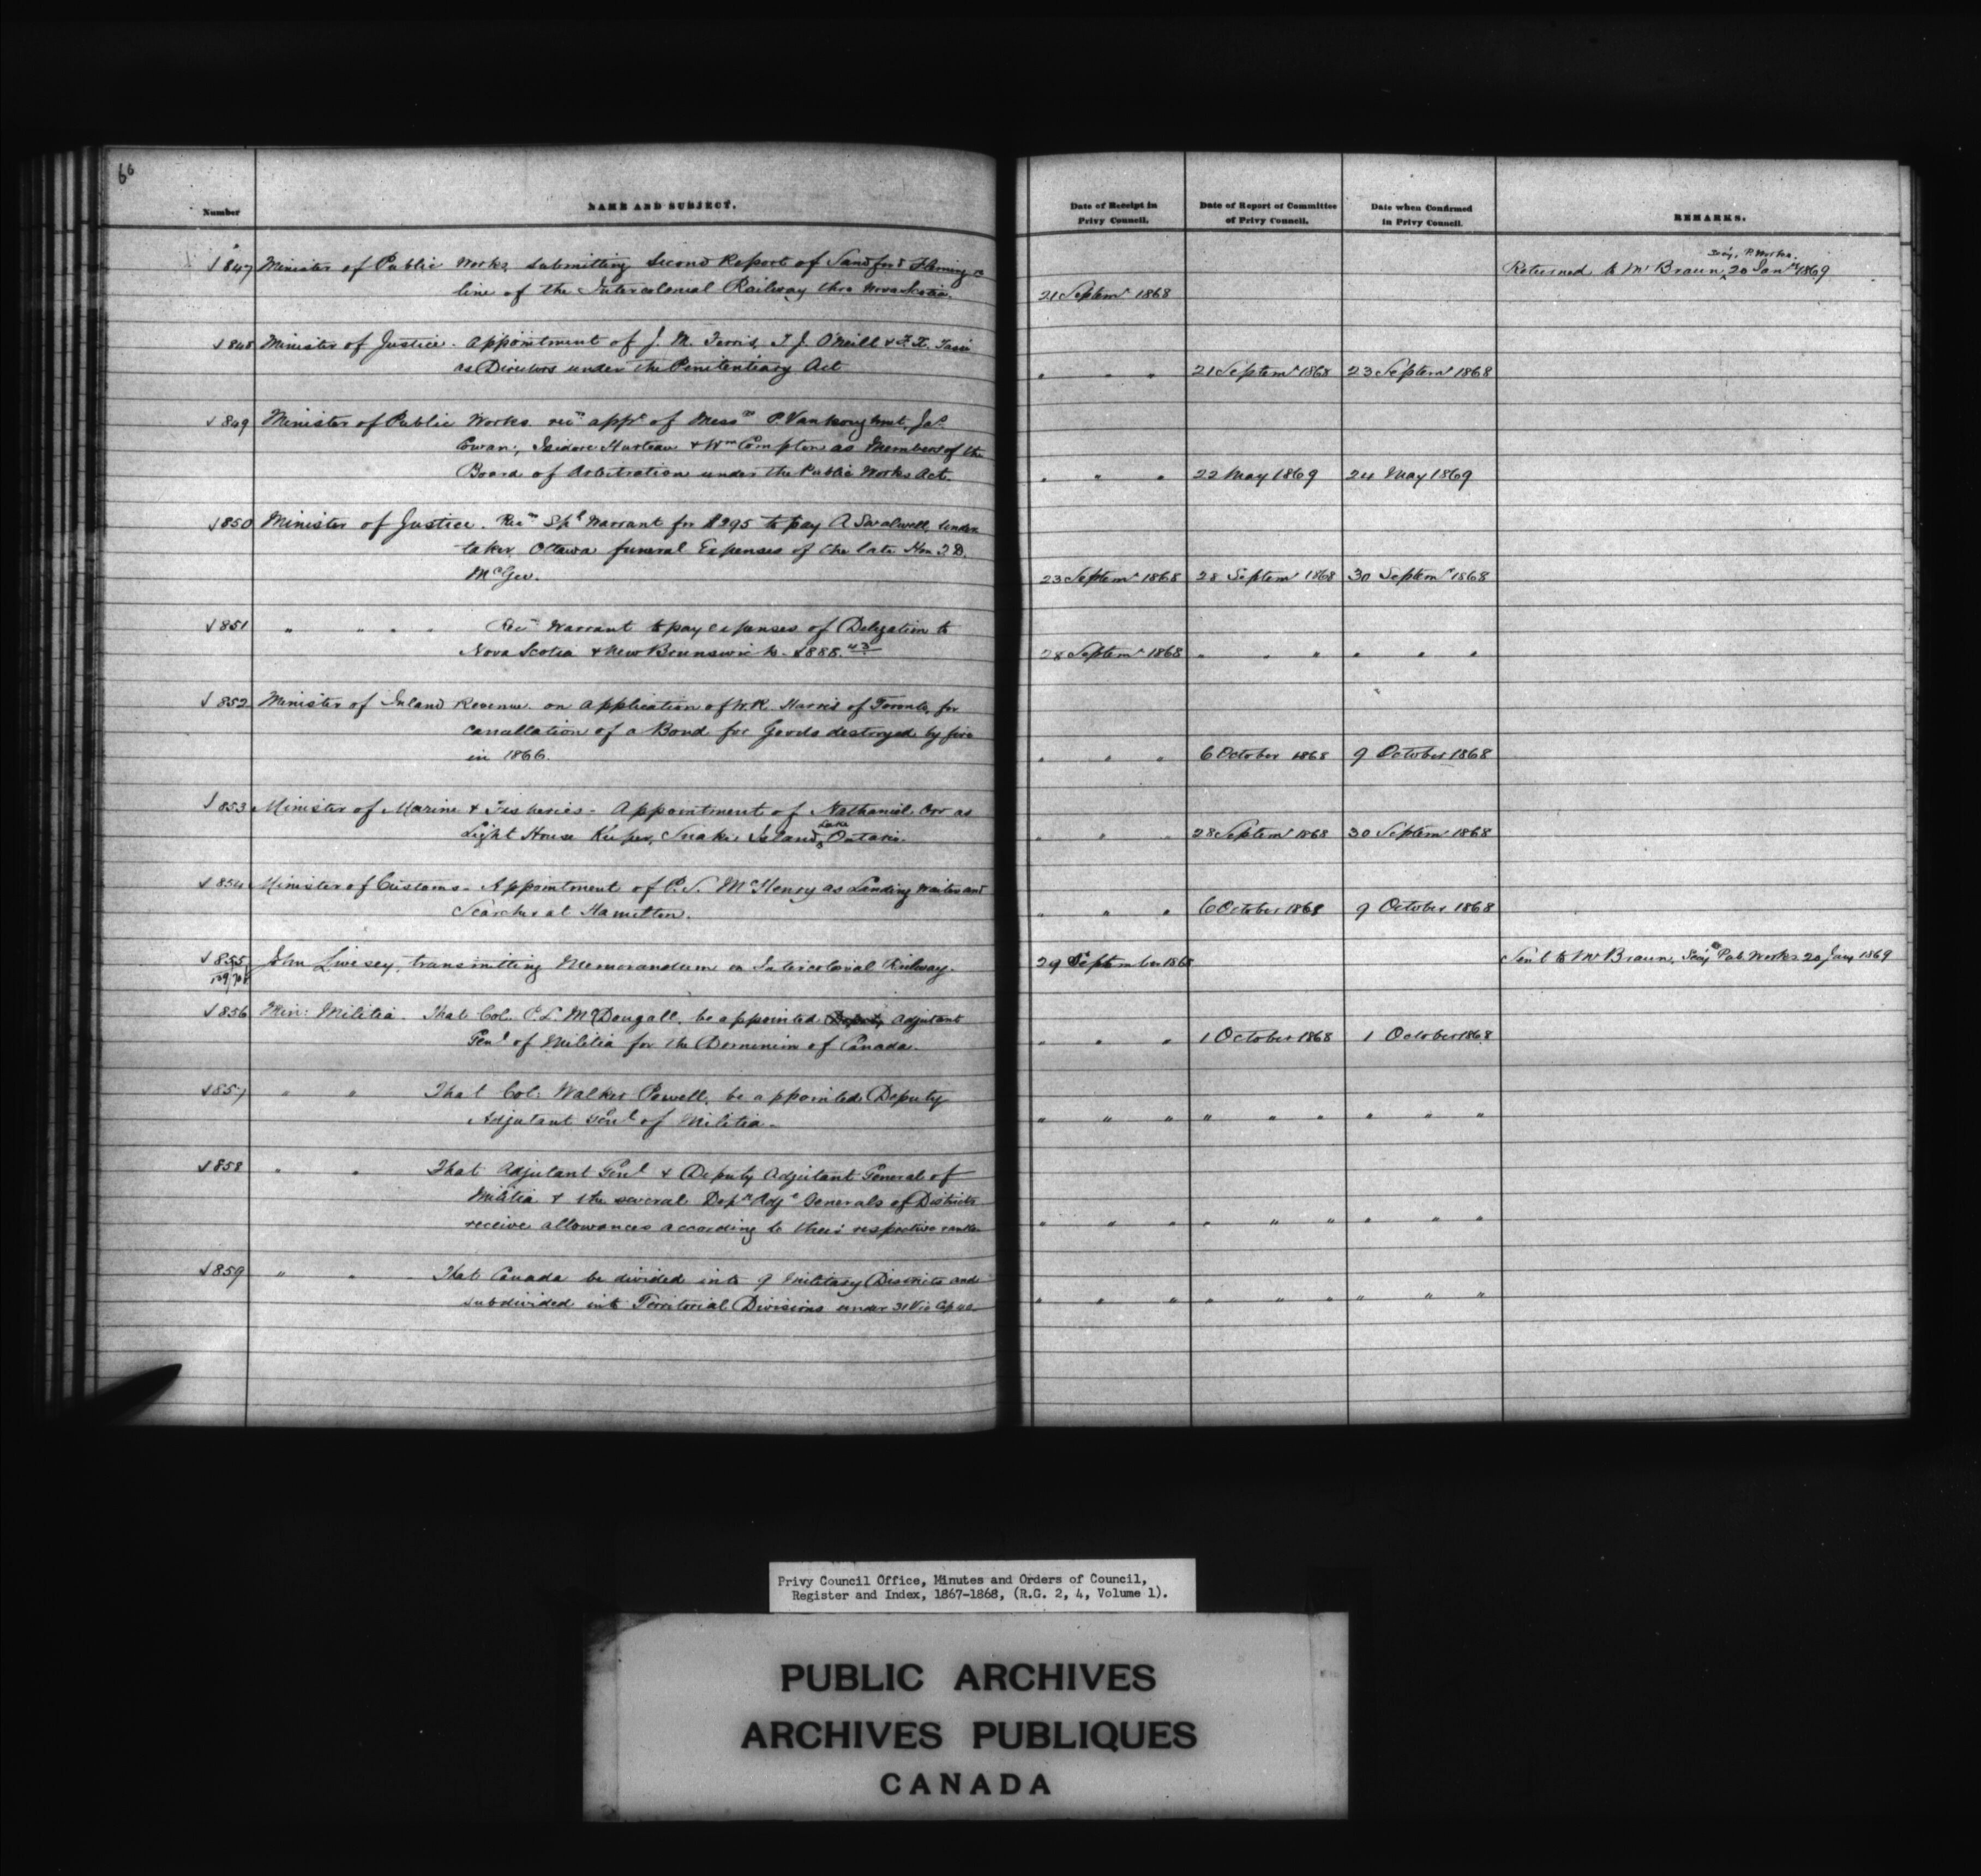 66
Number
NAME AND SUBJECT.
Date of Receipt in Privy Council.
Date of Report of Committee of Privy Council.
Date when Confirmed in Privy Council.
REMARKS.
847 Minister of Public Works, submitting Second Report of Sandford Fleming
Secy. P. Works.
Returned to Mr Braun, 20 Jany 1869
line of the Intercolonial Railway thro Nova Scotia. 21 Septemr 1868
848 Minister of Justice - Appointment of J. M. Ferris, T. J. O'Neill & F. X.
as Directors under the Penitentiary Act " " " 21 Septemr 1868 23 Septemr 1868
849 Minister of Public Works recg appt of Messrs P. Vankoughnet, Jas
Cowan, Isidore Hurteau & Wm Compton as Members of the
Board of Arbitration under the Public Works Act. " " " 22 May 1869 24 May 1869
850 Minister of Justice. Recg Spl Warrant for $295 to pay A Swalwell, Under
taker, Ottawa funeral Expenses of the late Hon T. D.
McGee. 23 Septemr 1868 28 Septemr 1868 30 Septemr 1868
851 " " " " Recg Warrant to pay expenses of Delegation to
Nova Scotia & New Brunswick - $888.43 28 Septemr 1868 " " " " " "
852 Minister of Inland Revenue on Application of W. R. Harris of Toronto, for
cancellation of a Bond for Goods destroyed by fire
in 1866. " " " 6 October 1868 9 October 1868
853 Minister of Marine & Fisheries - Appointment of Nathaniel Orr as
Light House Keeper, Snake Island, Lake Ontario. " " " 28 Septemr 1868 30 Septemr 1868
854 Minister of Customs - Appointment of P. S. McHenry as Landing Waiter and
Searcher at Hamilton. " " " 6 October 1868 9 October 1868
855 John Livesey, transmitting Memorandum on Intercolonial Railway. 29 September 1868 Sent to Mr Braun, Secy Pub. Works 20 Jany 1869
856 Min: Militia. That Col. P. L. McDougall, be appointed Deputy Adjutant
Genl of Militia for the Dominion of Canada. " " " 1 October 1868 1 October 1868
857 " " That Col. Walker Powell, be appointed Deputy
Adjutant Genl of Militia - " " " " " " " " "
858 " " That Adjutant Genl & Deputy Adjutant General of
Militia & the several Depy Adjt Generals of Districts
receive allowances according to their respective ranks " " " " " " " " "
859 " " That Canada be divided into 9 Military Districts and
subdivided into Territorial Divisions under 31 Vic Cap 40. " " " " " " " " "
Privy Council Office, Minutes and Orders of Council,
Register and Index, 1867-1868, (R.G. 2, 4, Volume 1).
PUBLIC ARCHIVES
ARCHIVES PUBLIQUES
CANADA